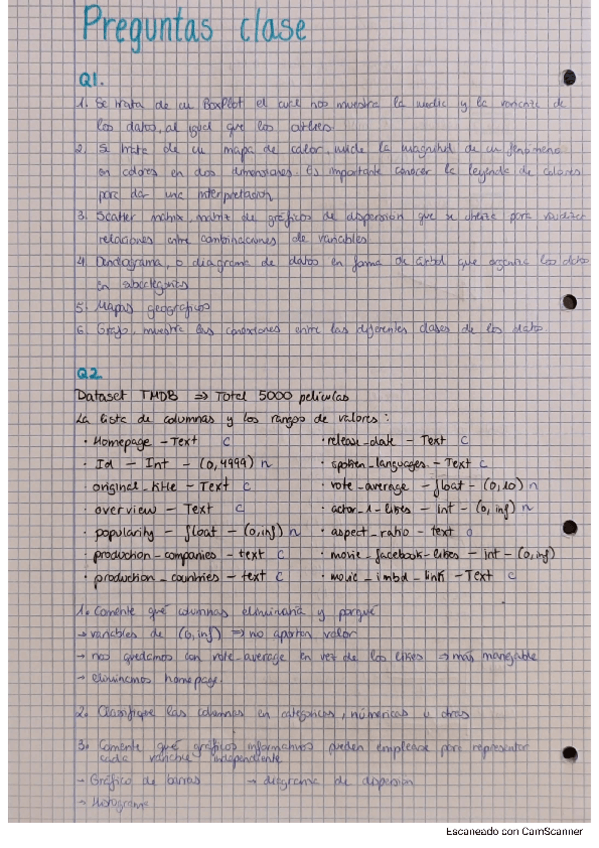 Preguntas clase
Q1.
1. Se trata de un BoxPlot el cual nos muestra la media y la variante de
los datos, al igual que los
2. Se trata de un mapa de calor, mide la magnitud de un fenómeno
en colores en dos dimensiones. Es importante conocer la leyenda de colores
para dar una interpretación
3. Scatter matrix, matriz de gráficos de dispersión que se utiliza para
relaciones entre combinaciones de variables
4. Dendograma, o diagrama de datos en forma de árbol que organiza los datos
en subcategorías
5. Mapas geográficos
6. Grafo, muestra las conexiones entre las diferentes clases de los datos
Q2
Dataset TMDB ⇒ Total 5000 películas
La lista de columnas y los rangos de valores :
· Homepage - Text C
· Id - Int - (0, 4999) n
· original_title - Text C
· overview - Text C
· popularity - float - (0, inf) n
· production_companies - text C
· production_countries - text C
· release_date - Text C
· spoken_languages. - Text C
· vote_average - float - (0, 10) n
· actor_1_likes - int - (0, inf) n
· aspect_ratio - text
· movie_facebook_likes - int - (0, inf)
· movie_imbd_link - Text C
1. Comente qué columnas eliminaría y porqué
→ variables de (0, inf) ⇒ no aportan valor
→ nos quedamos con vote_average en vez de los likes ⇒ más manejable
→ eliminamos homepage.
2. Clasifique las columnas en categóricas, numéricas u otras
3. Comente qué gráficos informativos pueden emplearse para representar
cada variable independiente
→ Gráfico de barras → diagrama de dispersión
→ Histograma
Escaneado con CamScanner